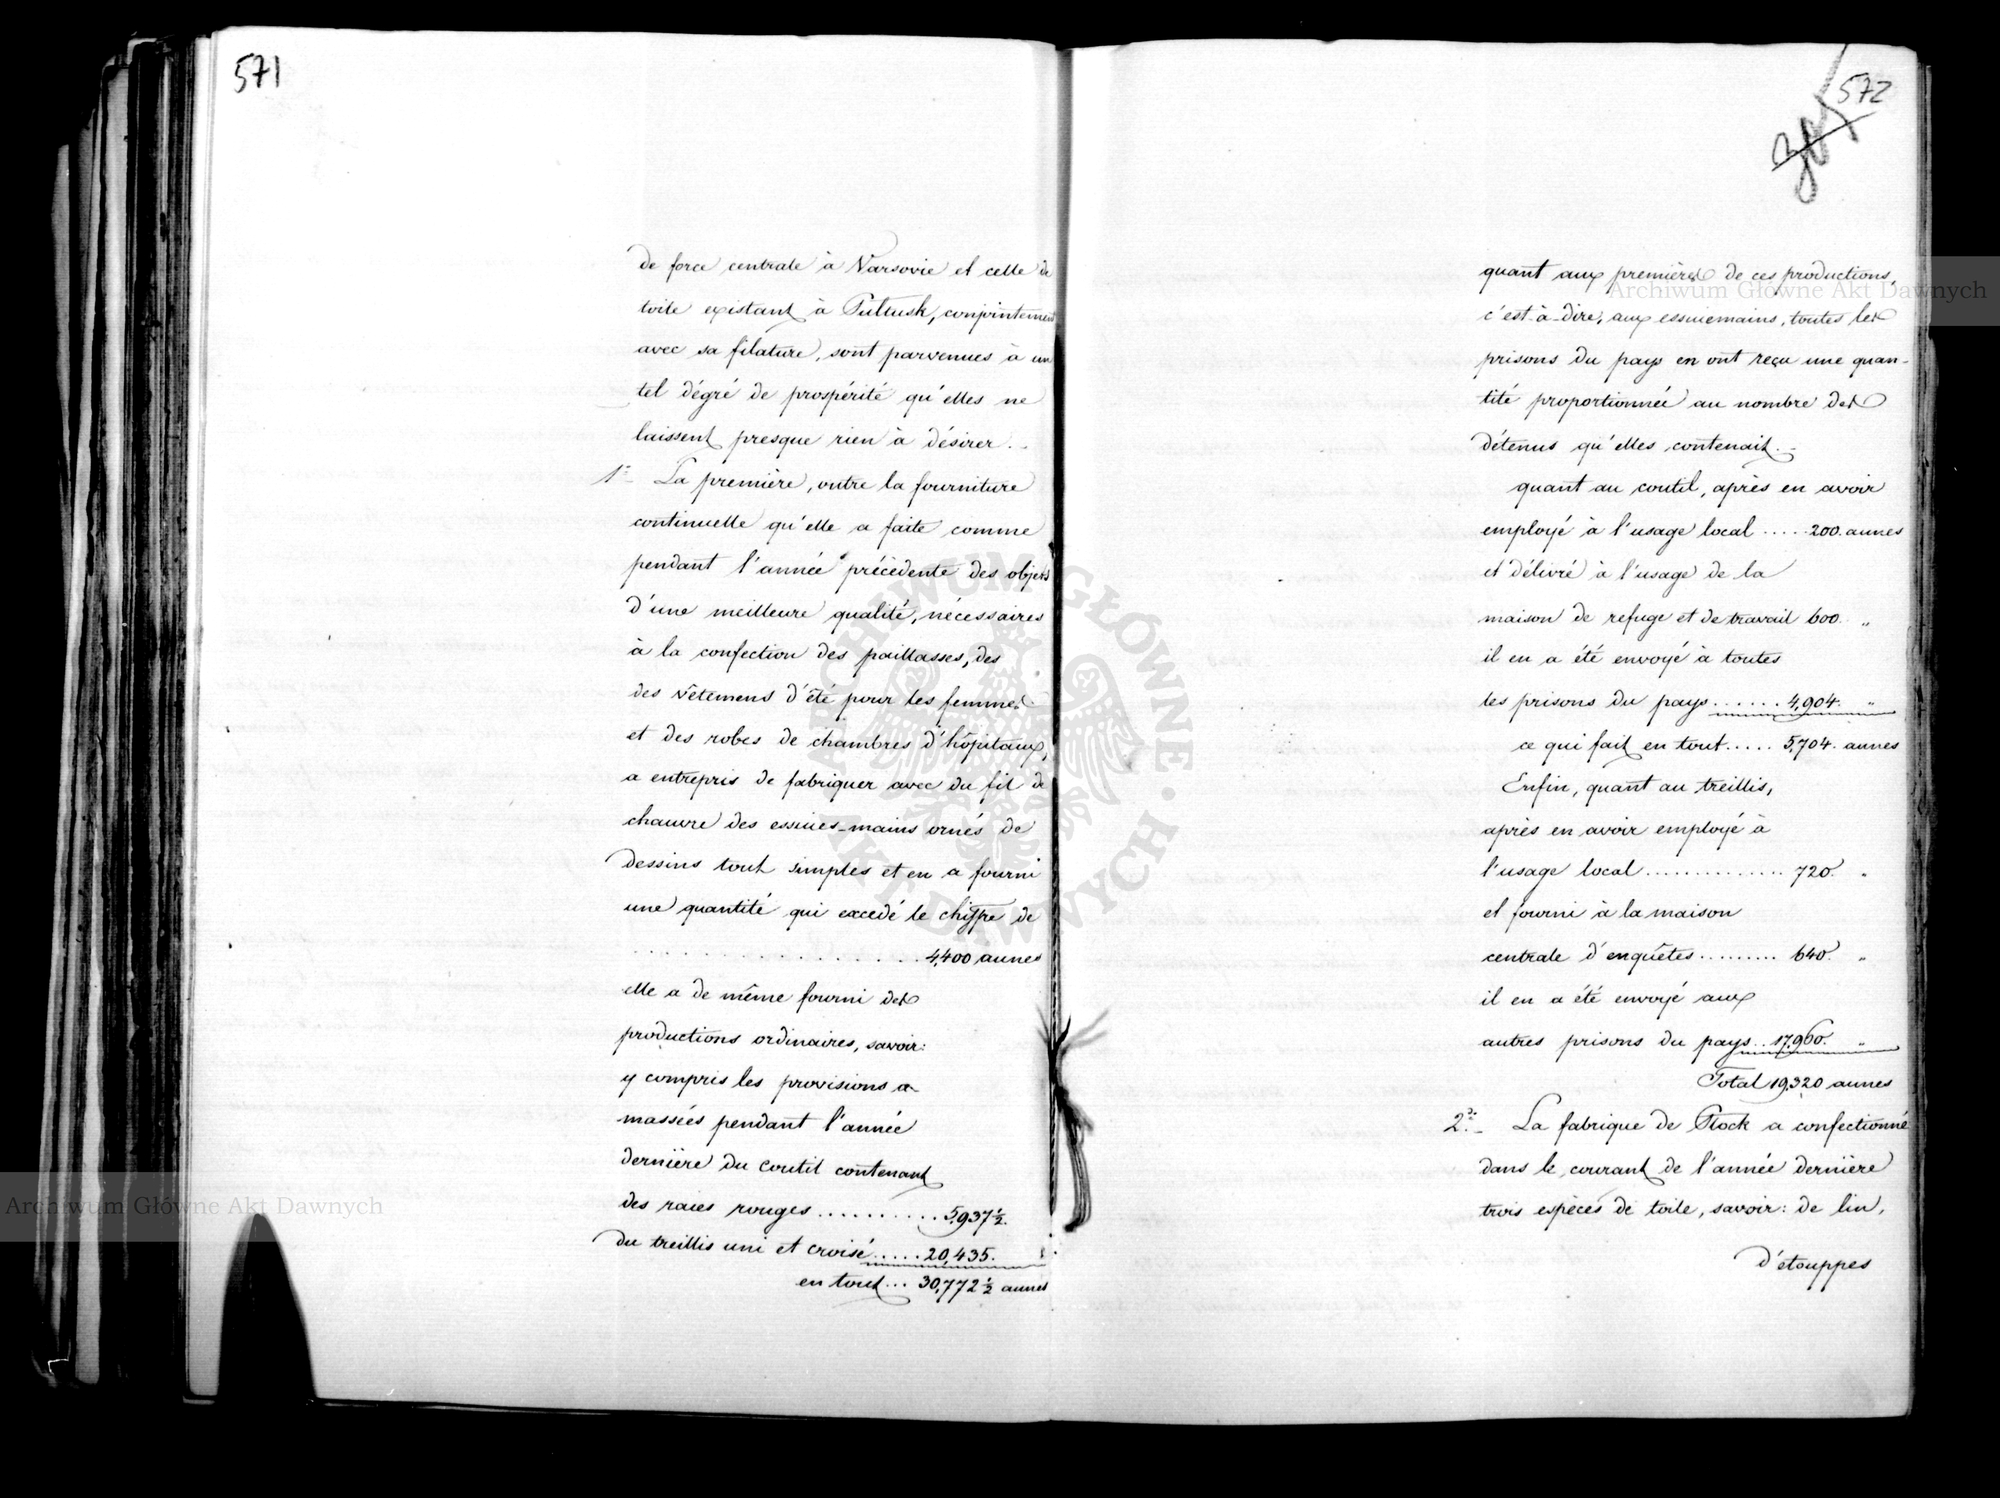 571
de force centrale à Varsovie et celle de
toile existant à Pultusk, conjointement
avec sa filature, sont parvenues à un
tel dégré de prospérité qu'elles ne
laissent presque rien à désirer. -
1º La première, outre la fourniture
continuelle qu'elle a faite comme
pendant l'année précédente des objets
d'une meilleure qualité, nécessaires
à la confection des paillasses, des
des vêtemens d'été pour les femmes
et des robes de chambres d'hôpitaux,
a entrepris de fabriquer avec du fil de
chauvre des essuies-mains ornés de
dessins tout simples et en a fourni
une quantité qui excedé le chiffre de
. . . . . . . . . . . . . . . . . 4,400 aunes
elle a de même fourni des
productions ordinaires, savoir:
y compris les provisions a-
massées pendant l'année
dernière du coutil contenant
des raies rouges .......... 5,937 ½.
du treillis uni et croisé ..... 20,435.
en tout ... 30,772 ½ aunes
572
quant aux premières de ces productions,
c'est-à-dire, aux essuiemains, toutes les
prisons du pays en ont reçu une quan-
tité proportionnée au nombre des
détenus qu'elles contenait. -
quant au coutil, après en avoir
employé à l'usage local ..... 200. aunes
et délivré à l'usage de la
maison de refuge et de travail 600. "
il en a été envoyé à toutes
les prisons du pays ...... 4,904. "
ce qui fait en tout ..... 5,704. aunes
Enfin, quant au treillis,
après en avoir employé à
l'usage local .............. 720. "
et fourni à la maison
centrale d'enquêtes ......... 640. "
il en a été envoyé aux
autres prisons du pays .. 17,960. "
Total 19,320 aunes
2º. - La fabrique de Plock a confectionné
dans le courant de l'année dernière
trois espèces de toile, savoir: de lin,
d'étouppes
Archiwum Główne Akt Dawnych
Archiwum Główne Akt Dawnych
ARCHIWUM GŁÓWNE AKT DAWNYCH